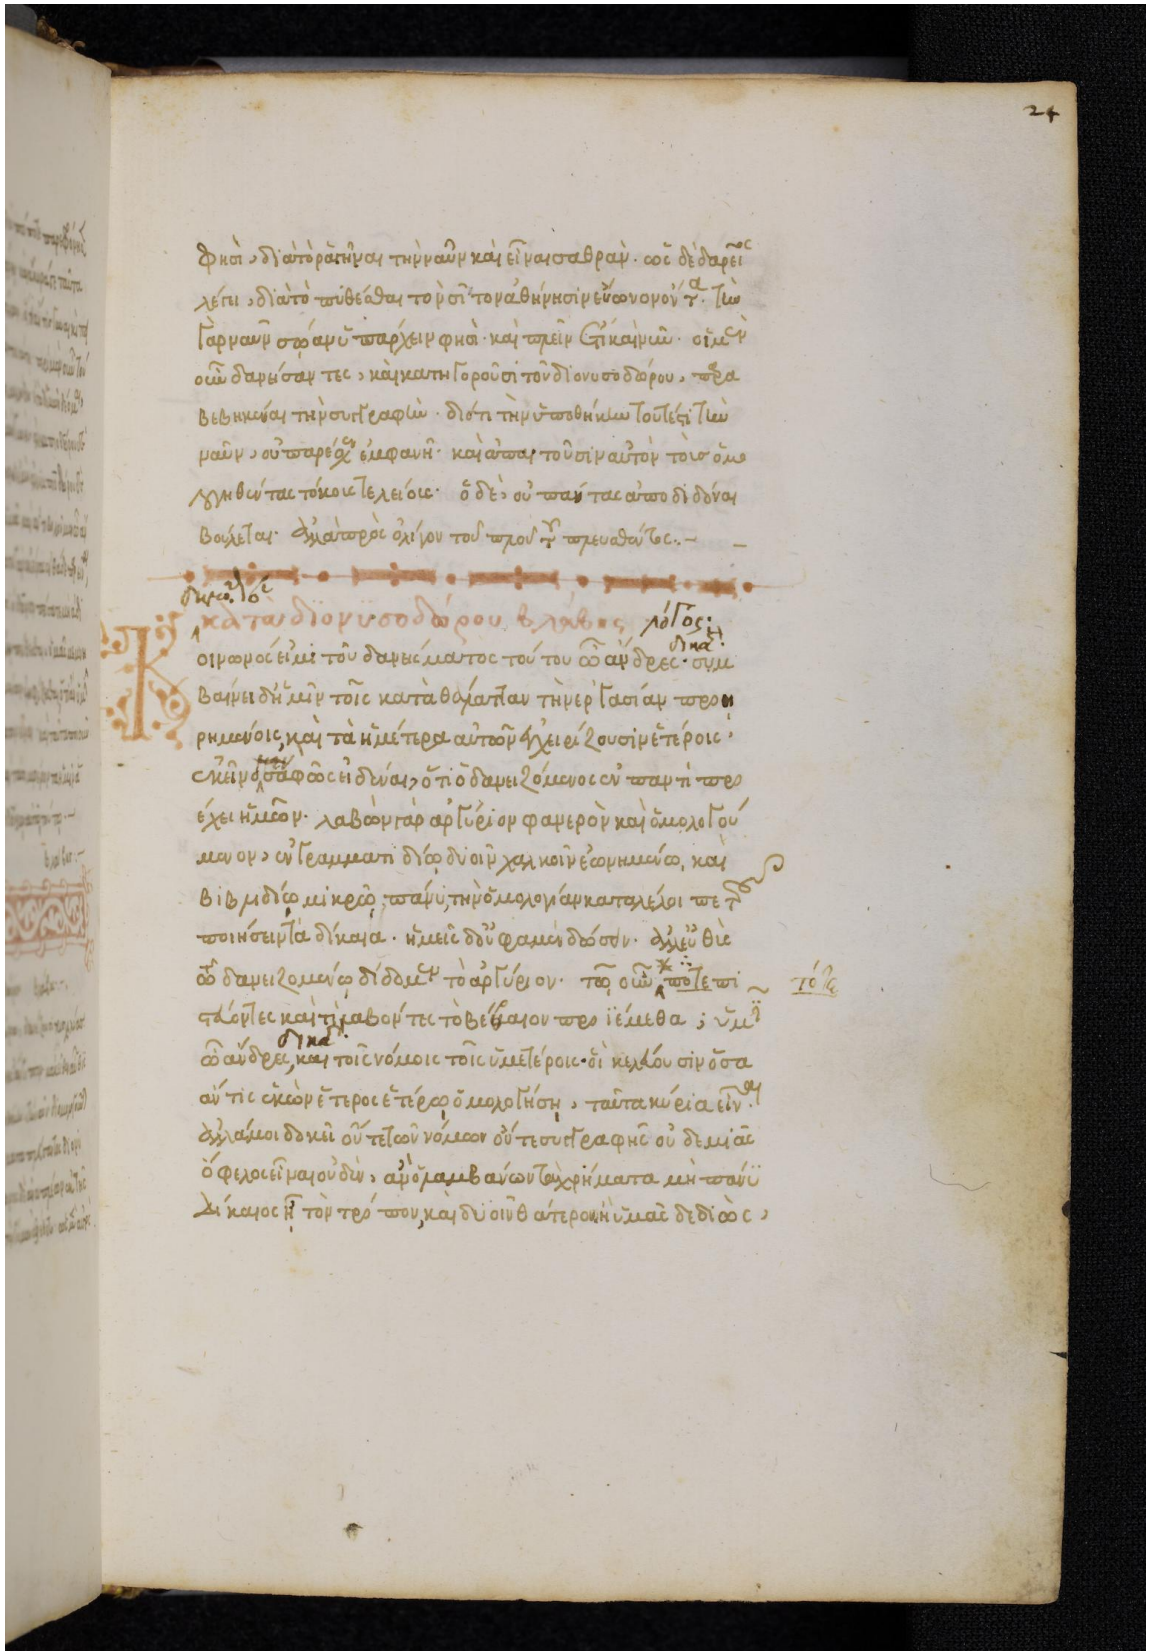 24
φησὶ, διὰ τὸ ῥαγῆναι τὴν ναῦν καὶ εἶναι σαθράν. ὡς δὲ δαρεῖος
λέγει, διὰ τὸ πυθέσθαι τὸν σῖτον ἀθήνησιν εὔωνον ὄντα. τὴν
γὰρ ναῦν σῴαν ὑπάρχειν φησὶ. καὶ πλεῖν ἔτι καὶ νῦν. οἱ μὲν
οὖν δανείσαντες, καὶ κατηγοροῦσι τοῦ διονυσοδώρου, παρα
βεβηκέναι τὴν συγγραφὴν. διότι τὴν ὑποθήκην τουτέστι τὴν
ναῦν, οὐ παρέσχεν ἐμφανῆ. καὶ ἀπαιτοῦσιν αὐτὸν τοὺς ὁμο
λογηθέντας τόκους τελείους. ὁ δὲ, οὐ πάντας ἀποδιδόναι
βούλεται. ἀλλὰ πρὸς ὀλίγον τοῦ πλοῦ τοῦ πλευσθέντος.
κατὰ διονυσοδώρου βλάβης λόγος
Κοινωνός εἰμι τοῦ δανείσματος τούτου ὦ ἄνδρες δικα. συμ
βαίνει δ' ἡμῖν τοῖς κατὰ θάλατταν τὴν ἐργασίαν προῃ
ρημένοις, καὶ τὰ ἡμέτερα αὐτῶν ἐγχειρίζουσιν ἑτέροις,
ἐκεῖνο μὲν σαφῶς εἰδέναι, ὅτι ὁ δανειζόμενος ἐν παντὶ προ
έχει ἡμῶν. λαβὼν γὰρ ἀργύριον φανερὸν καὶ ὁμολογού
μενον, ἐν γραμματιδίῳ δυοῖν χαλκοῖν ἐωνημένῳ, καὶ
βιβλιδίῳ μικρῷ πάνυ, τὴν ὁμολογίαν καταλέλοιπε τοῦ
ποιήσειν τὰ δίκαια. ἡμεῖς δ' οὐ φαμὲν δώσειν. ἀλλ' εὐθὺς
τῷ δανειζομένῳ δίδομεν τὸ ἀργύριον. τῷ οὖν ποτε πι
τότε
στεύοντες καὶ τί λαβόντες τὸ βέβαιον προϊέμεθα; ὑμῖν
ὦ ἄνδρες δικα, καὶ τοῖς νόμοις τοῖς ὑμετέροις. οἳ κελεύουσιν ὅσα
ἄν τις ἑκὼν ἕτερος ἑτέρῳ ὁμολογήσῃ, ταῦτα κύρια εἶναι.
ἀλλά μοι δοκεῖ οὔτε τῶν νόμων οὔτε συγγραφῆς οὐδεμιᾶς
ὄφελος εἶναι οὐδὲν, ἂν ὁ λαμβάνων τὰ χρήματα μὴ πάνυ
δίκαιος ᾖ τὸν τρόπον, καὶ δυοῖν θάτερον ἢ ὑμᾶς δεδιὼς,